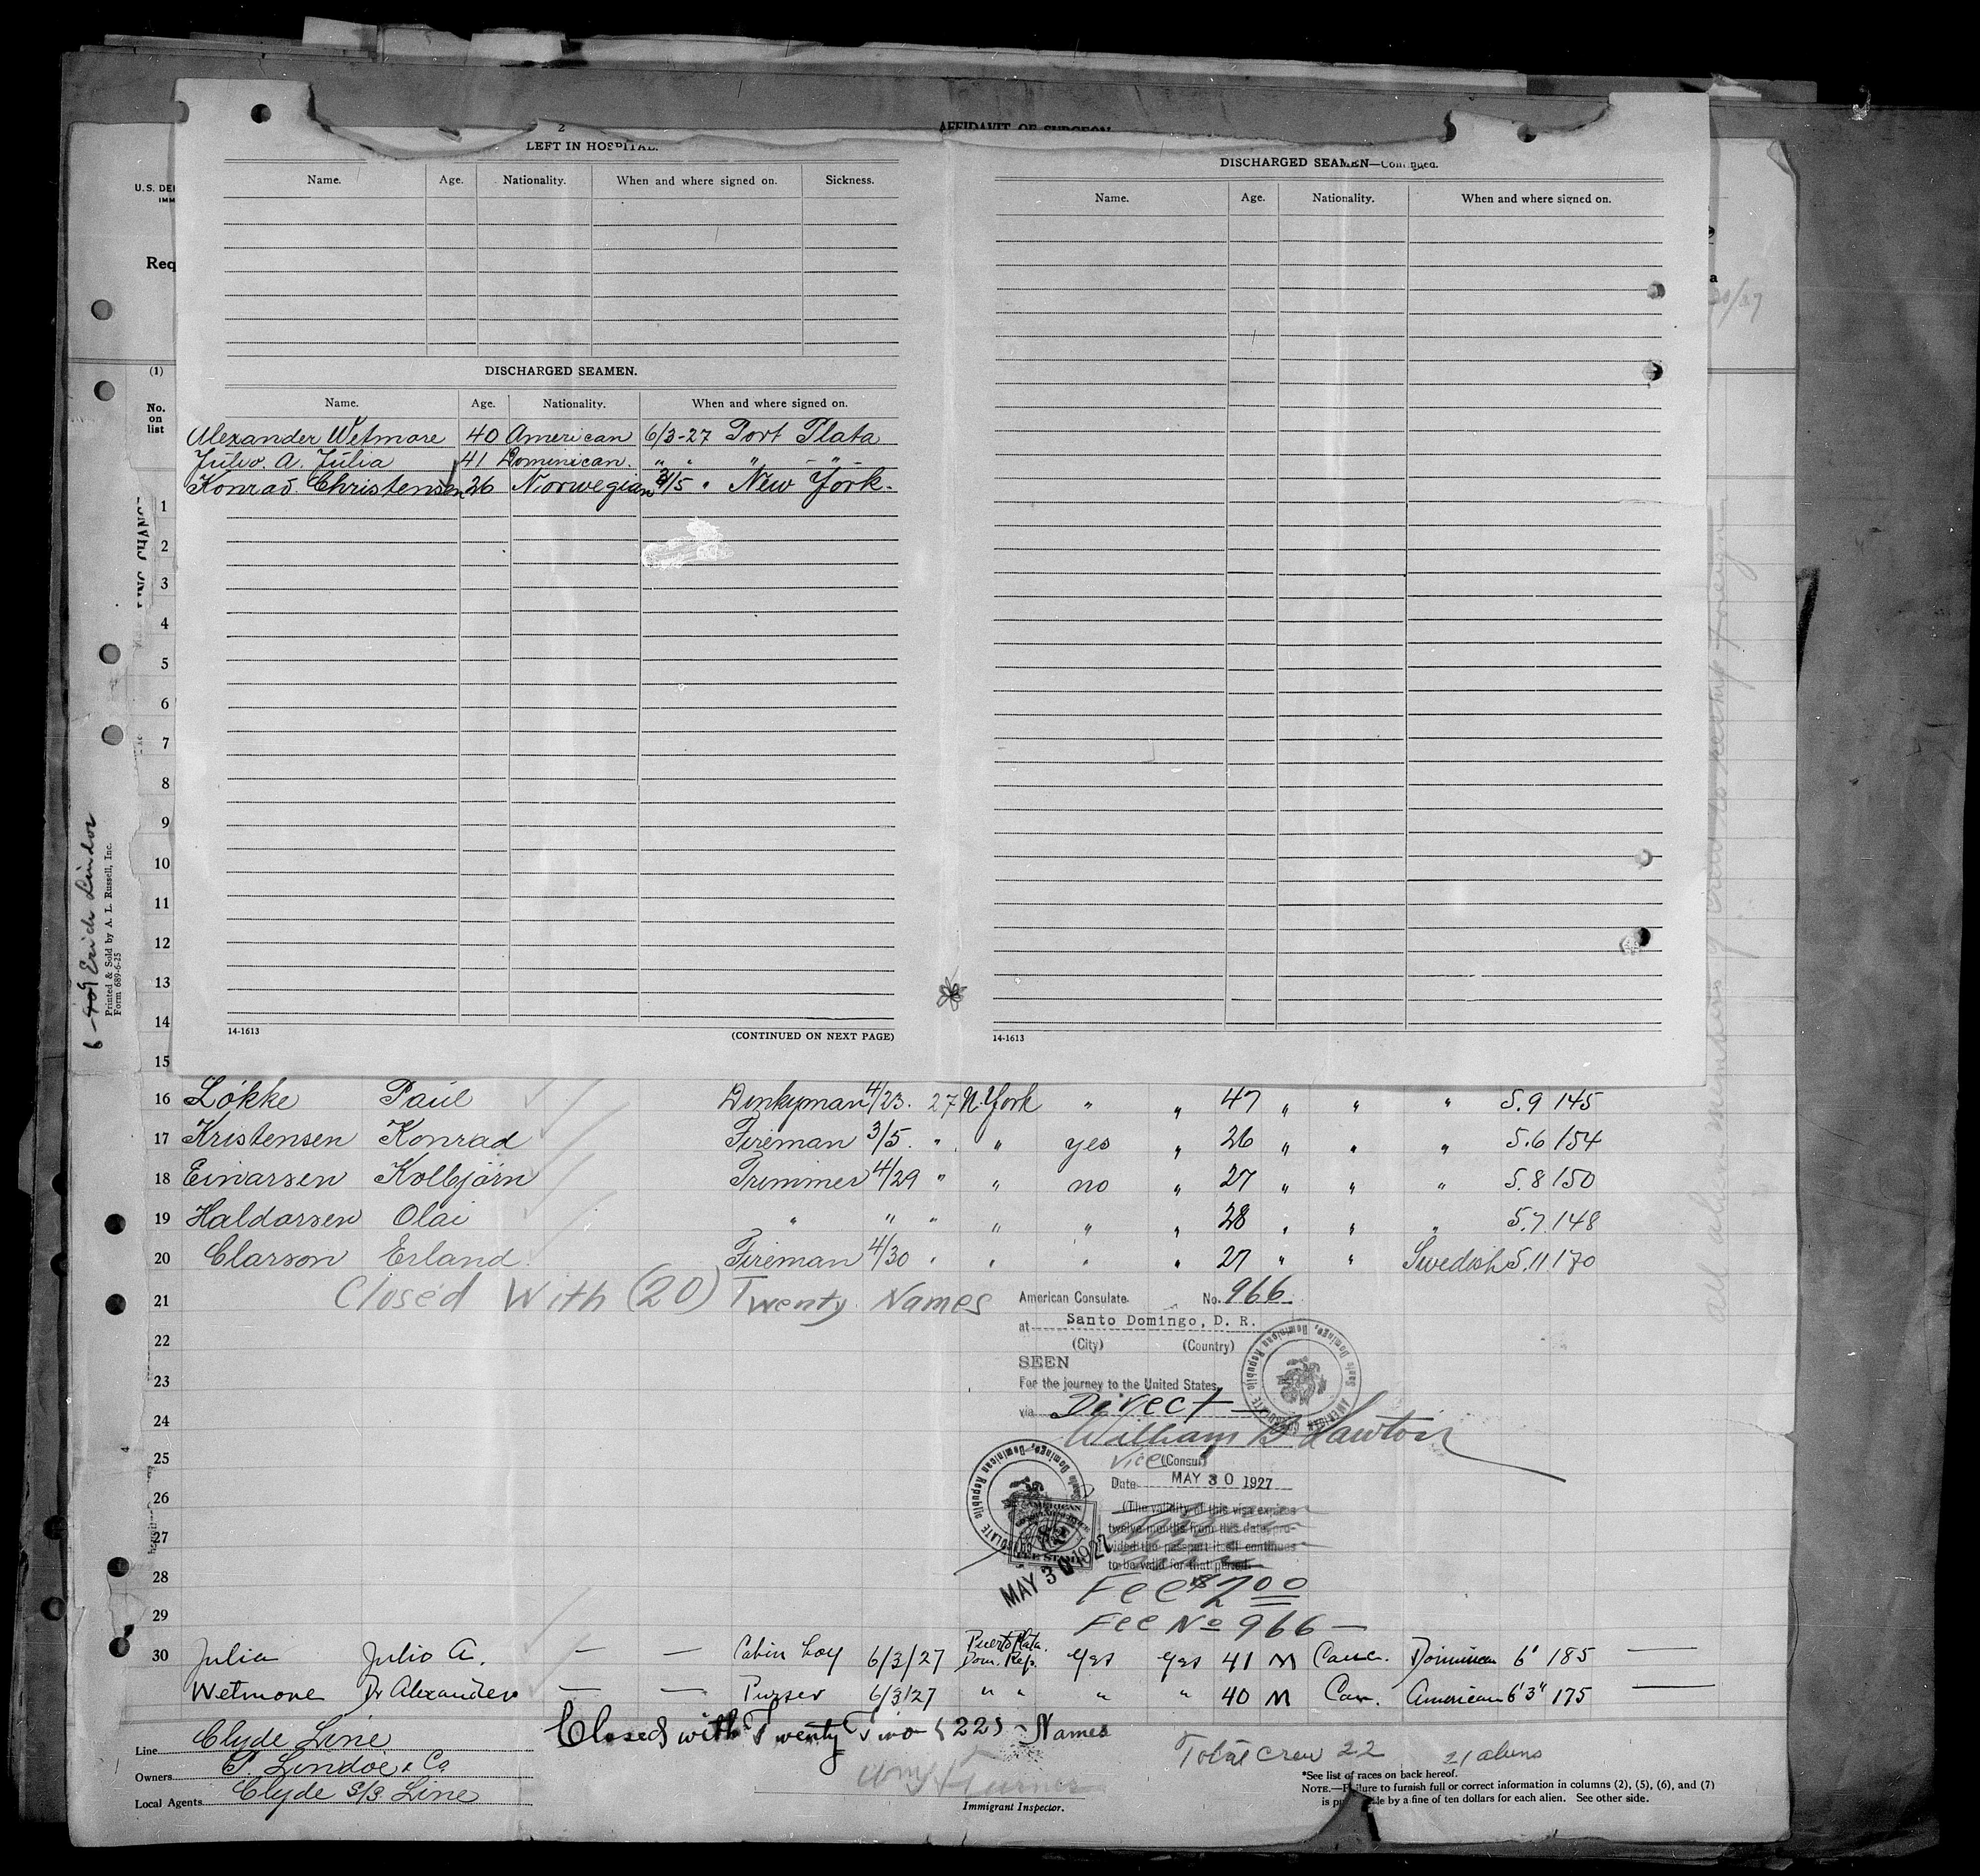 AFFIDAVIT OF SURGEON
2
LEFT IN HOSPITAL.
Name. Age. Nationality. When and where signed on. Sickness.
DISCHARGED SEAMEN.
Name. Age. Nationality. When and where signed on.
Alexander Wetmore 40 American 6/3-27 Port Plata
Julio. A. Julia 41 Dominican. " " " - " -
Konrad Christensen 26 Norwegian 3/5 " New York.
14-1613 (CONTINUED ON NEXT PAGE)
DISCHARGED SEAMEN—Continued.
Name. Age. Nationality. When and where signed on.
14-1613
U.S. DE
IMM
Req
(1)
No. on list
1
2
3
4
5
6
7
8
9
10
11
12
13
14
15
6 Erich Lindoe
Printed & Sold by A. L. Russell, Inc.
Form 689-6-25
16 Lökke Paul Donkeyman 4/23. 27 N. York " " 47 " " " 5.9 145
17 Kristensen Konrad Fireman 3/5. " " yes " 26 " " " 5.6 154
18 Einarsen Kolbjörn Trimmer 4/29 " " no " 27 " " " 5.8 150
19 Haldorsen Olai " " " " " " 28 " " " 5.7. 148
20 Clarson Erland. Fireman 4/30 " " " " 27 " " Swedish 5.11. 170
21 Closed With (20) Twenty Names
22
23
24
25
26
27
28
29
American Consulate No. 966
at Santo Domingo, D. R.
(City) (Country)
SEEN
For the journey to the United States
via Direct
William B Lawton
Vice (Consul)
Date MAY 30 1927
(The validity of this visa expires
twelve months from this date, pro-
vided the passport itself continues
to be valid for that period.
MAY 30 1927
Fee $2.00
Fee No 966 —
30 Julia Julio A. — — Cabin boy 6/3/27 Puerto Plata. Dom. Rep. Yes Yes 41 M Cauc. Dominican 6' 185 —
Wetmore Dr Alexander — — Purser 6/3/27 " " " " 40 M Cau. American 6'3" 175 —
Closed with Twenty Two (22) - Names
Total Crew 22 21 aliens
Line Clyde Line
Owners P. Lindoe & Co
Local Agents Clyde S/S Line
Immigrant Inspector.
*See list of races on back hereof.
NOTE.—Failure to furnish full or correct information in columns (2), (5), (6), and (7)
is punishable by a fine of ten dollars for each alien. See other side.